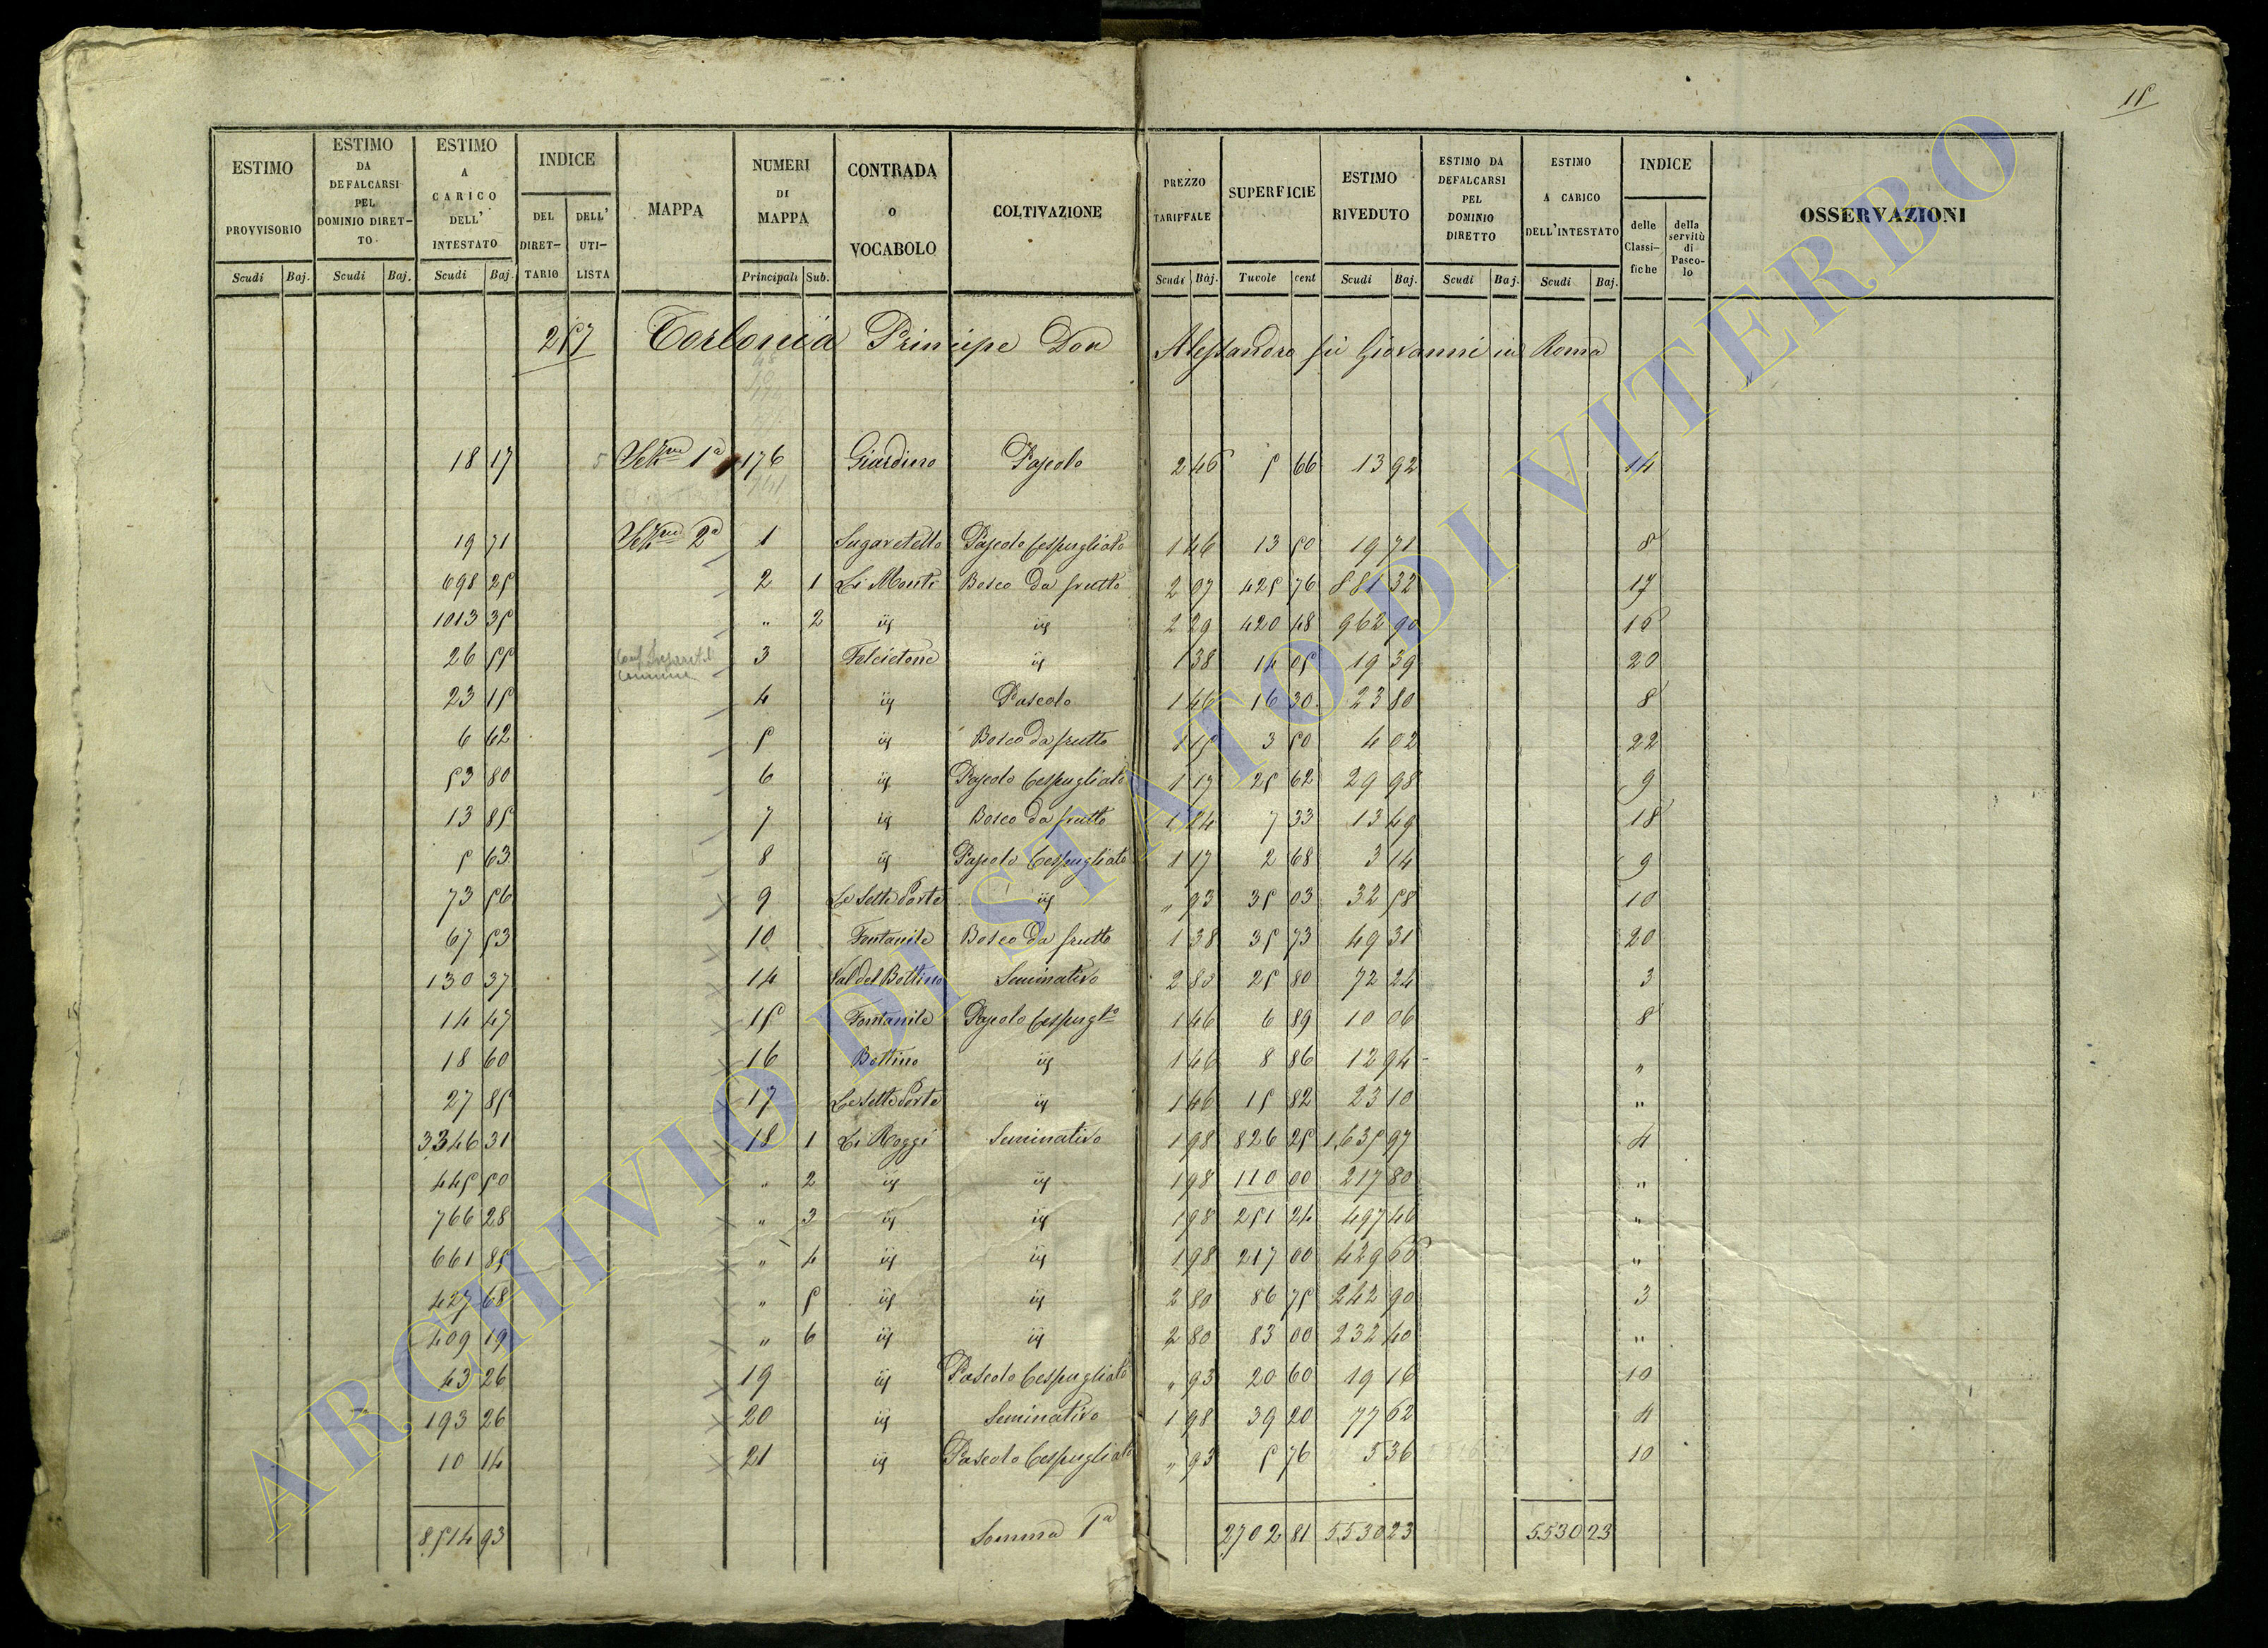 15
ESTIMO PROVVISORIO Scudi Baj.
ESTIMO DA DEFALCARSI PEL DOMINIO DIRET-TO Scudi Baj.
ESTIMO A CARICO DELL' INTESTATO Scudi Baj.
INDICE DEL DIRET-TARIO DELL' UTI-LISTA
MAPPA
NUMERI DI MAPPA Principali Sub.
CONTRADA o VOCABOLO
COLTIVAZIONE
PREZZO TARIFFALE Scudi Baj.
SUPERFICIE Tavole cent
ESTIMO RIVEDUTO Scudi Baj.
ESTIMO DA DEFALCARSI PEL DOMINIO DIRETTO Scudi Baj.
ESTIMO A CARICO DELL'INTESTATO Scudi Baj.
INDICE delle Classi-fiche della servitù di Pasco-lo
OSSERVAZIONI
257 Torlonia Principe Don Alessandro fù Giovanni in Roma
18 17 5 1a 176 Giardino Pascolo 2 46 5 66 13 92 14
19 71 2a 1 Sugaretello Pascolo Cespugliato 1 46 13 50 19 71 8
698 25 2 1 Li Monti Bosco da frutto 2 07 425 76 881 32 17
1013 35 " 2 iij iij 2 29 420 48 962 90 16
26 55 3 Felcietone iij 1 38 14 05 19 39 20
23 15 4 iij Pascolo 1 46 16 30 23 80 8
6 62 5 iij Bosco da frutto 1 15 3 50 4 02 22
53 80 6 iij Pascolo Cespugliato 1 17 25 62 29 98 9
13 85 7 iij Bosco da frutto 1 24 7 33 13 49 18
5 63 8 iij Pascolo Cespugliato 1 17 2 68 3 14 9
73 56 9 Le Sette Porte iij " 93 35 03 32 58 10
67 53 10 Fontanile Bosco da frutto 1 38 35 73 49 31 20
130 37 14 Val del Bottino Seminativo 2 80 25 80 72 24 3
14 47 15 Fontanile Pascolo Cespugto 1 46 6 89 10 06 8
18 60 16 Bottino iij 1 46 8 86 12 94 "
27 85 17 Le Sette Porte iij 1 46 15 82 23 10 "
3346 31 18 1 Li Poggi Seminativo 1 98 826 25 1,635 97 4
445 50 " 2 iij iij 1 98 110 00 217 80 "
766 28 " 3 iij iij 1 98 251 24 497 46 "
661 85 " 4 iij iij 1 98 217 00 429 66 "
427 68 " 5 iij iij 2 80 86 75 242 90 3
409 19 " 6 iij iij 2 80 83 00 232 40 "
43 26 19 iij Pascolo Cespugliato " 93 20 60 19 16 10
193 26 20 iij Seminativo 1 98 39 20 77 62 4
10 14 21 iij Pascolo Cespugliato " 93 5 76 5 36 10
8514 93 Somma 1a 2702 81 5530 23 5530 23
ARCHIVIO DI STATO DI VITERBO